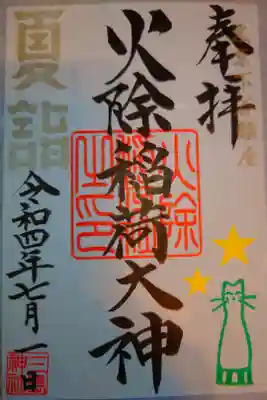 奉拝
火除稲荷大神
夏詣
令和四年七月一日
火除稲荷之印